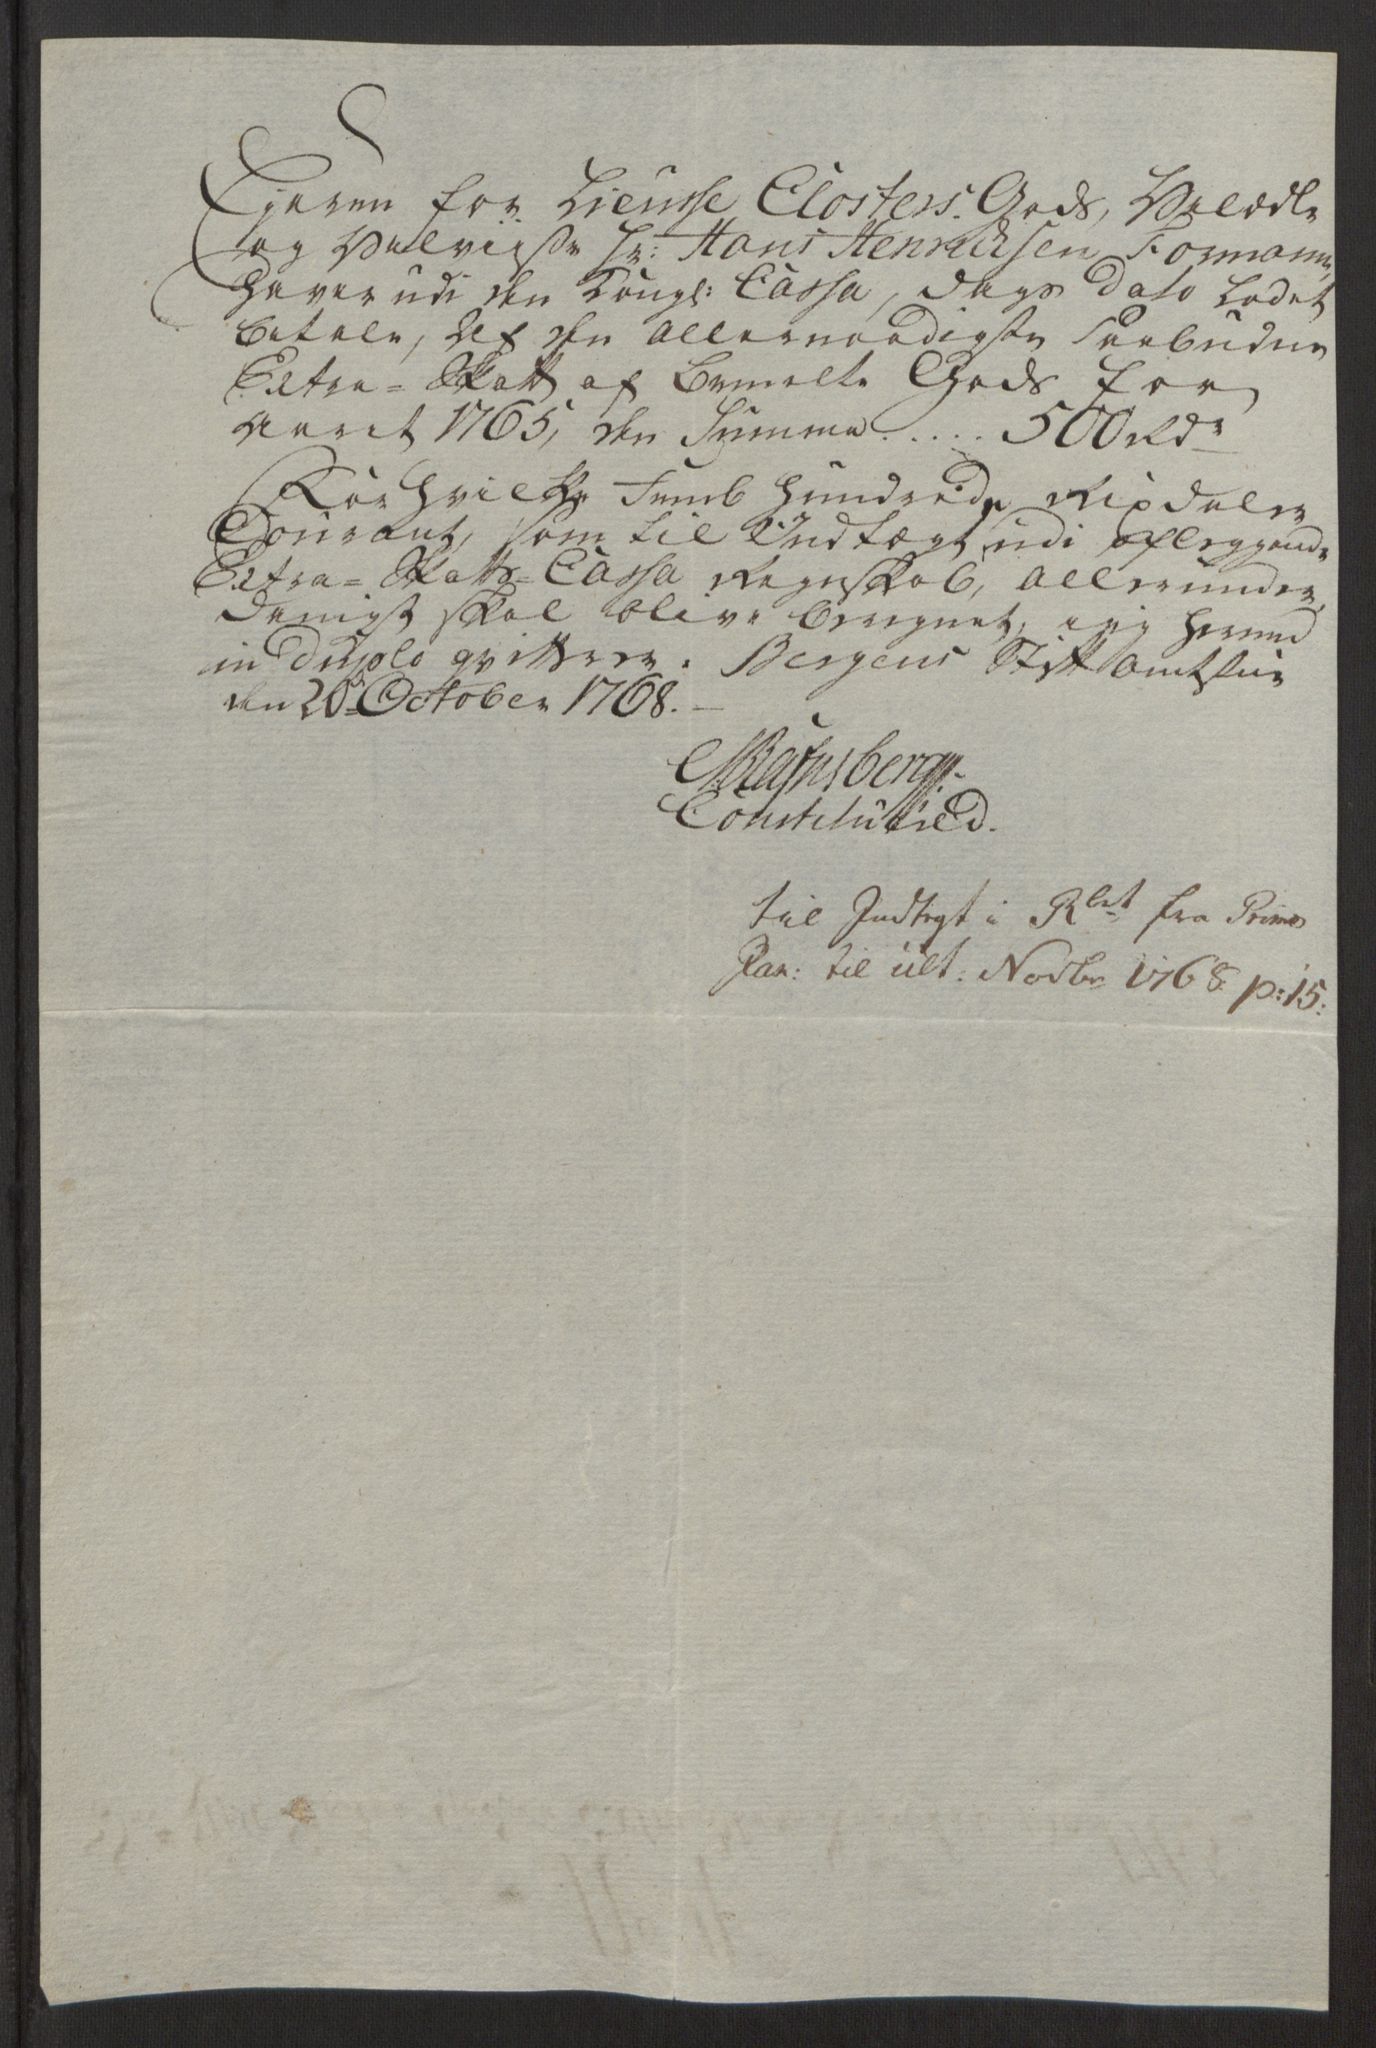 Ejeren for Liensse Closters Gods, Velædle
og Velviise Hr: Hans Henrichsen Formann,
haver udi den Kongl: Cassa, Dags Dato ladet
betale, af den Allernaadigste paabudne
Extra=Skatt af bemelte Gods for
Aaret 1765, den Summa ..... 500 Rdr
For hvilke Femb Hundrede Rixdaler
Courant, som til Indtægt udi aflæggende
Extra=Skatts=Cassa Regnskab, allerunder
danigst skal blive beregnet, ieg herved
in duplo qvitterer. Bergens Stiftamtstue
den 20de October 1768.
Constitutied.
til Indtegt i Rbet fra Primo
Jan: til ult: Novbr 1768 p: 15: